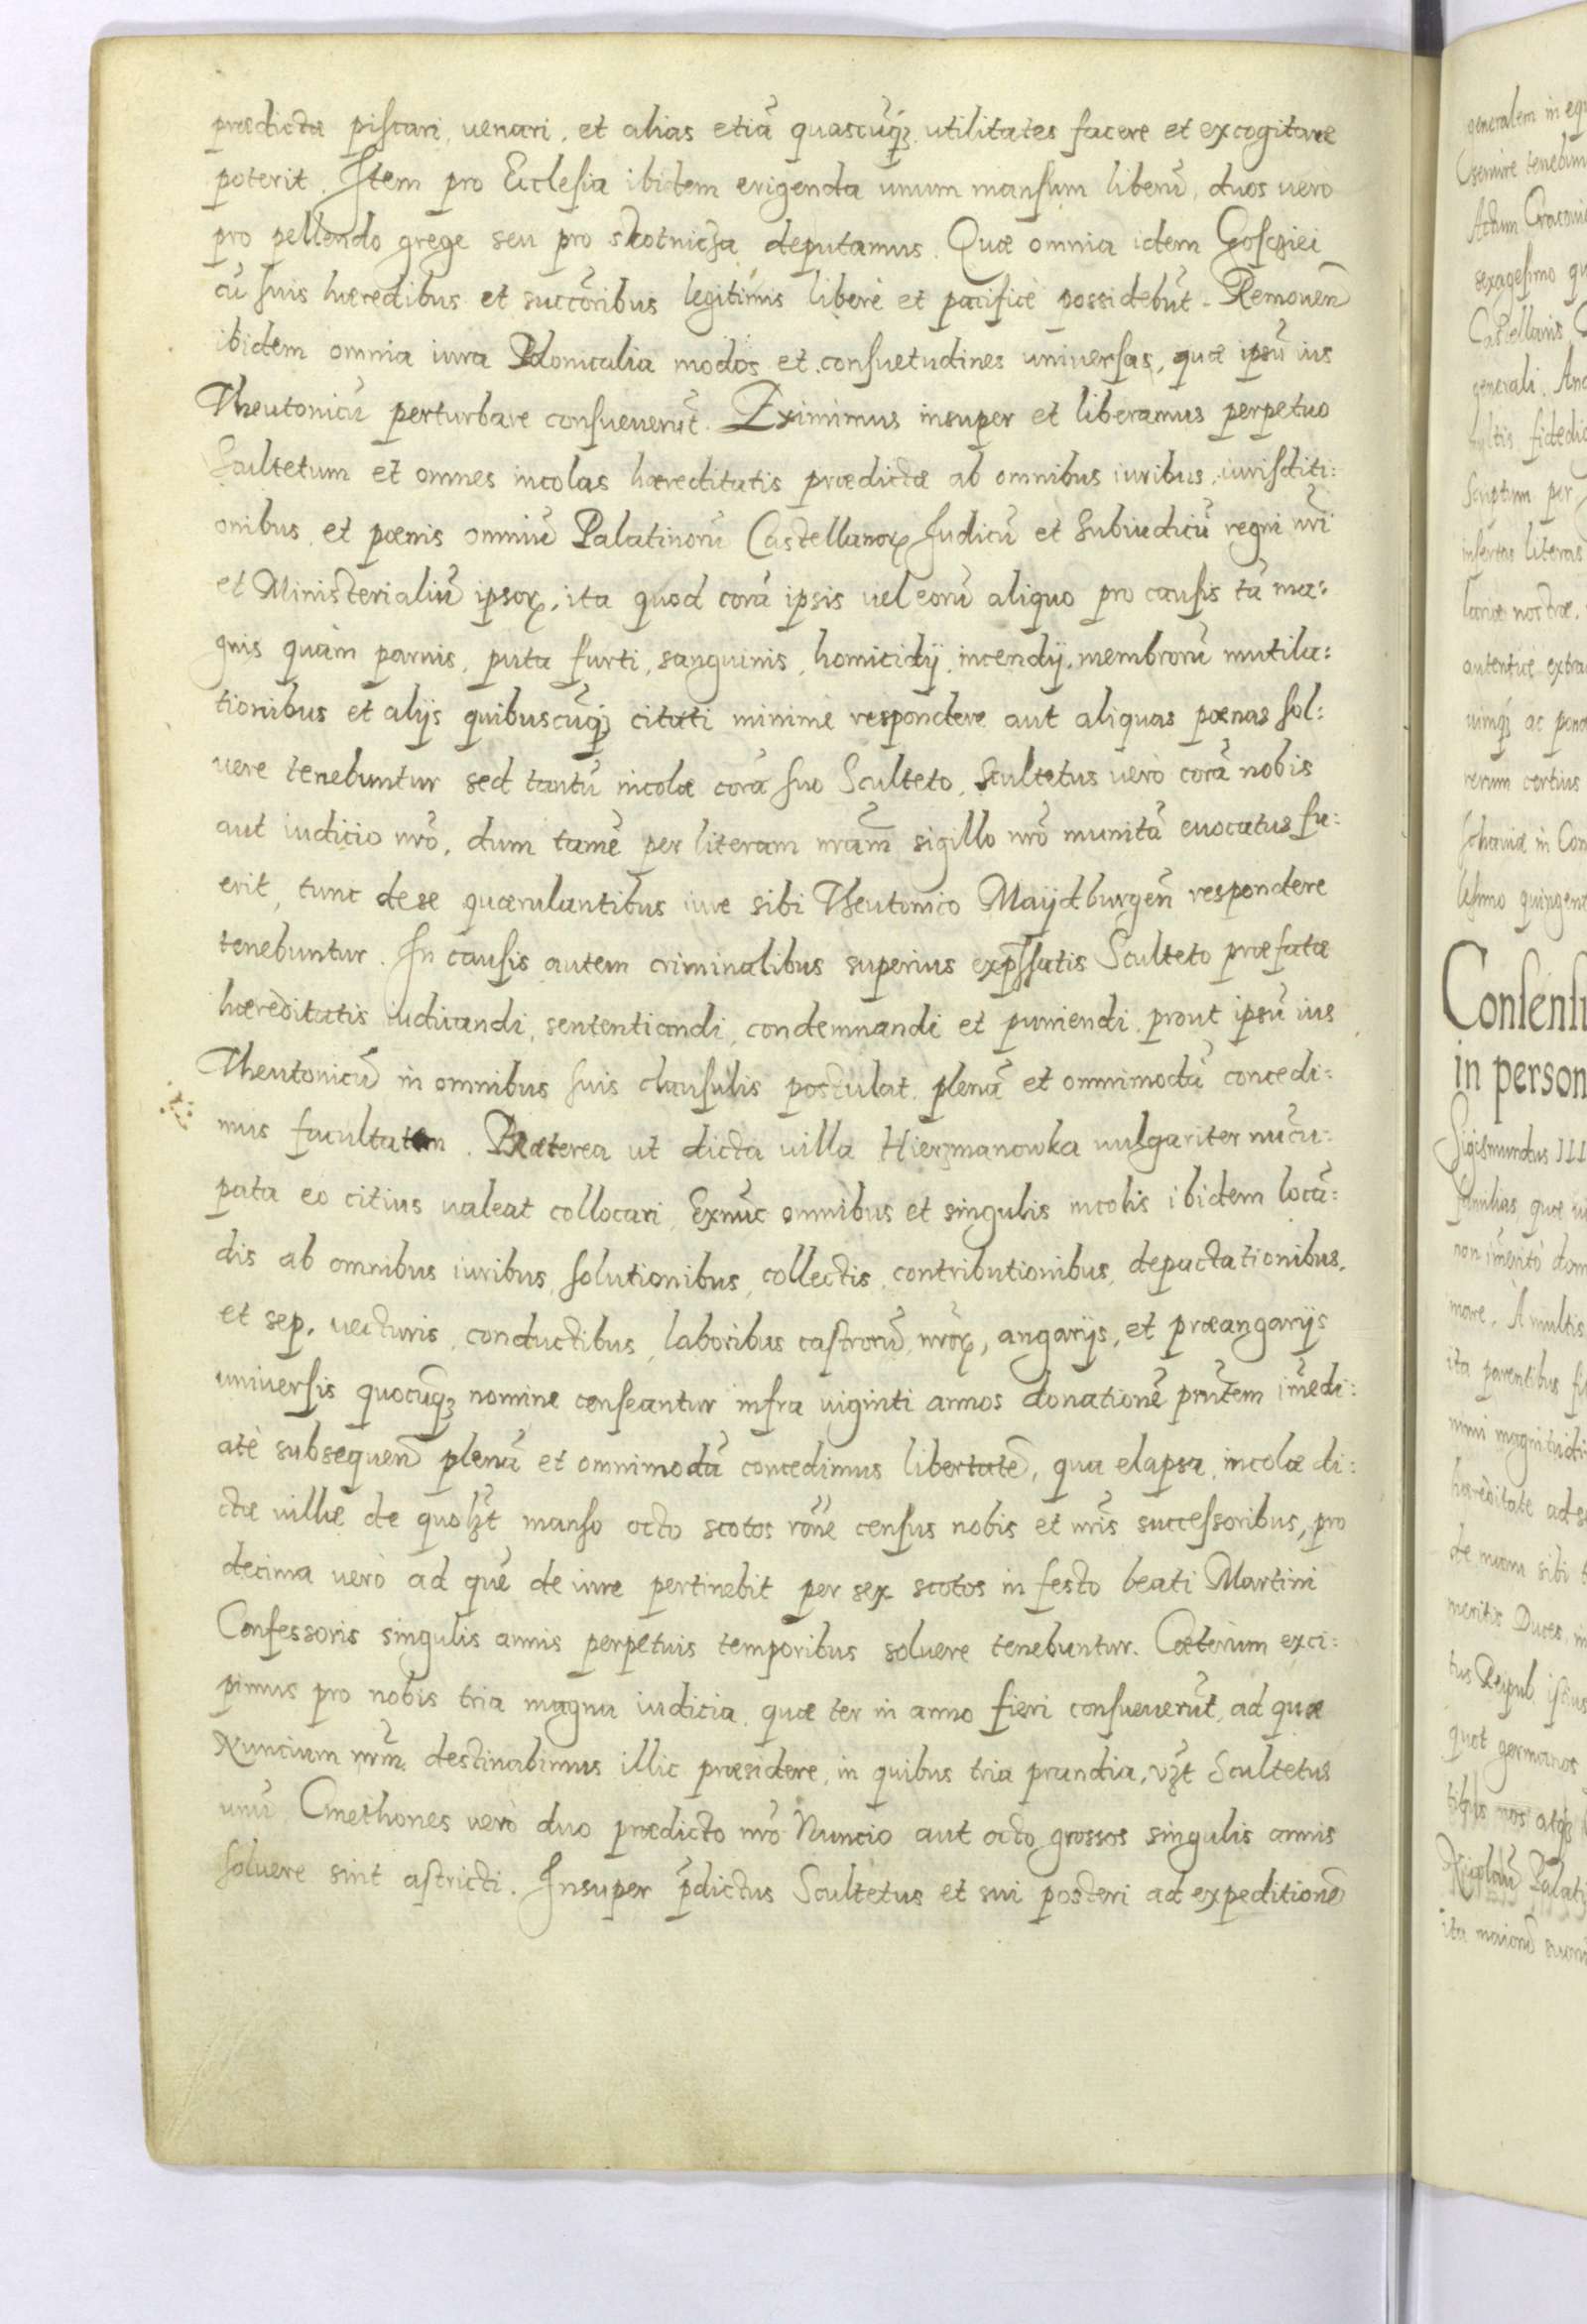 prædictæ piscari, uenari, et alias etiā quascūq₃ utilitates facere et excogitare
poterit. Item pro Ecclesia ibidem erigenda unum mansum liberū, duos uero
pro pellendo grege seu pro skotnicza deputamus. Quæ omnia idem Goscziei
cū suis hæredibus et succōribus legitimis liberè et pacificè possidebūt. Remouen̄
ibidem omnia iura Polonicalia modos et consuetudines uniuersas, quæ ipsū ius
Theutonicū perturbare consueuerūt. Eximimus insuper et liberamus perpetuo
Scultetum et omnes incolas hæreditatis prædictæ ab omnibus iuribus, iurisditi:
onibus et pœnis omniū Palatinorū Castellanoꝝ Judicū et Subiudicū regni nr̄i
et Ministerialiū ipsoꝝ, ita quod corā ipsis uel eorū aliquo pro causis tā ma:
gnis quàm paruis, puta furti, sanguinis, homicidij, incendij, membrorū mutila:
tionibus et alijs quibuscūq₃ citati minimè respondere aut aliquas pœnas sol:
uere tenebuntur sed tantū incolæ corā suo Sculteto, Scultetus uerò corā nobis
aut iudicio nr̄o, dum tamē per literam nr̄am sigillo nr̄o munitā euocatus fu:
erit, tunc de se quærulantibus iure sibi Theutonico Maijdburgen̄ respondere
tenebuntur. In causis autem criminalibus superius exp̄ssatis Sculteto præfatæ
hæreditatis iudicandi, sententiandi, condemnandi et puniendi, prout ipsū ius
Theutonicū in omnibus suis clausulis postulat, plenā et omnimodā concedi:
mus facultatem. Præterea ut dicta uilla Hierzmanowka uulgariter nūcu:
pata eo citius ualeat collocari, Exnūc omnibus et singulis incolis ibidem locā:
dis ab omnibus iuribus, solutionibus, collectis, contributionibus, depactationibus,
et sep, uecturis, conductibus, laboribus castrorū nr̄oꝝ, angarijs, et præangarijs
uniuersis quocūq₃ nomine censeantur infra uiginti annos donationē pn̄tem īmedi:
atè subsequen̄ plenā et omnimodā concedimus libertatē, qua elapsa, incolæ di:
ctæ uillæ de quolꝫt manso octo scotos rōne census nobis et nr̄is successoribus, pro
decima uerò ad quē de iure pertinebit per sex scotos in festo beati Martini
Confessoris singulis annis perpetuis temporibus soluere tenebuntur. Cæterùm exci:
pimus pro nobis tria magna iudicia, quæ ter in anno fieri consueuerūt, ad quæ
Nuncium nr̄m destinabimus illic præsidere, in quibus tria prandia, vꝫt Scultetus
unū Cmethones uerò duo prædicto nr̄o Nuncio aut octo grossos singulis annis
soluere sint astricti. Insuper p̄dictus Scultetus et sui posteri ad expeditionē
generalem in
seruire tenebun
Actum Cracoui
sexagesimo qu
Castellanis
generali. And
multis fidedig
Scriptum per
insertas literas
lariæ nostræ.
autenticè extra
uimq₃ ac pond
rerum certius
in Con
lesimo quingent
Consensu
in person
Sigismundus III
familias, quæ
non īmeritò dom
more. A multis
ita parentibus
nimi magnitudi
hæreditate ad
de nuam sibi
meritis Duces
tus Reipub.
quot germanos
nos atq₃
Palati
ita maiorū suorū